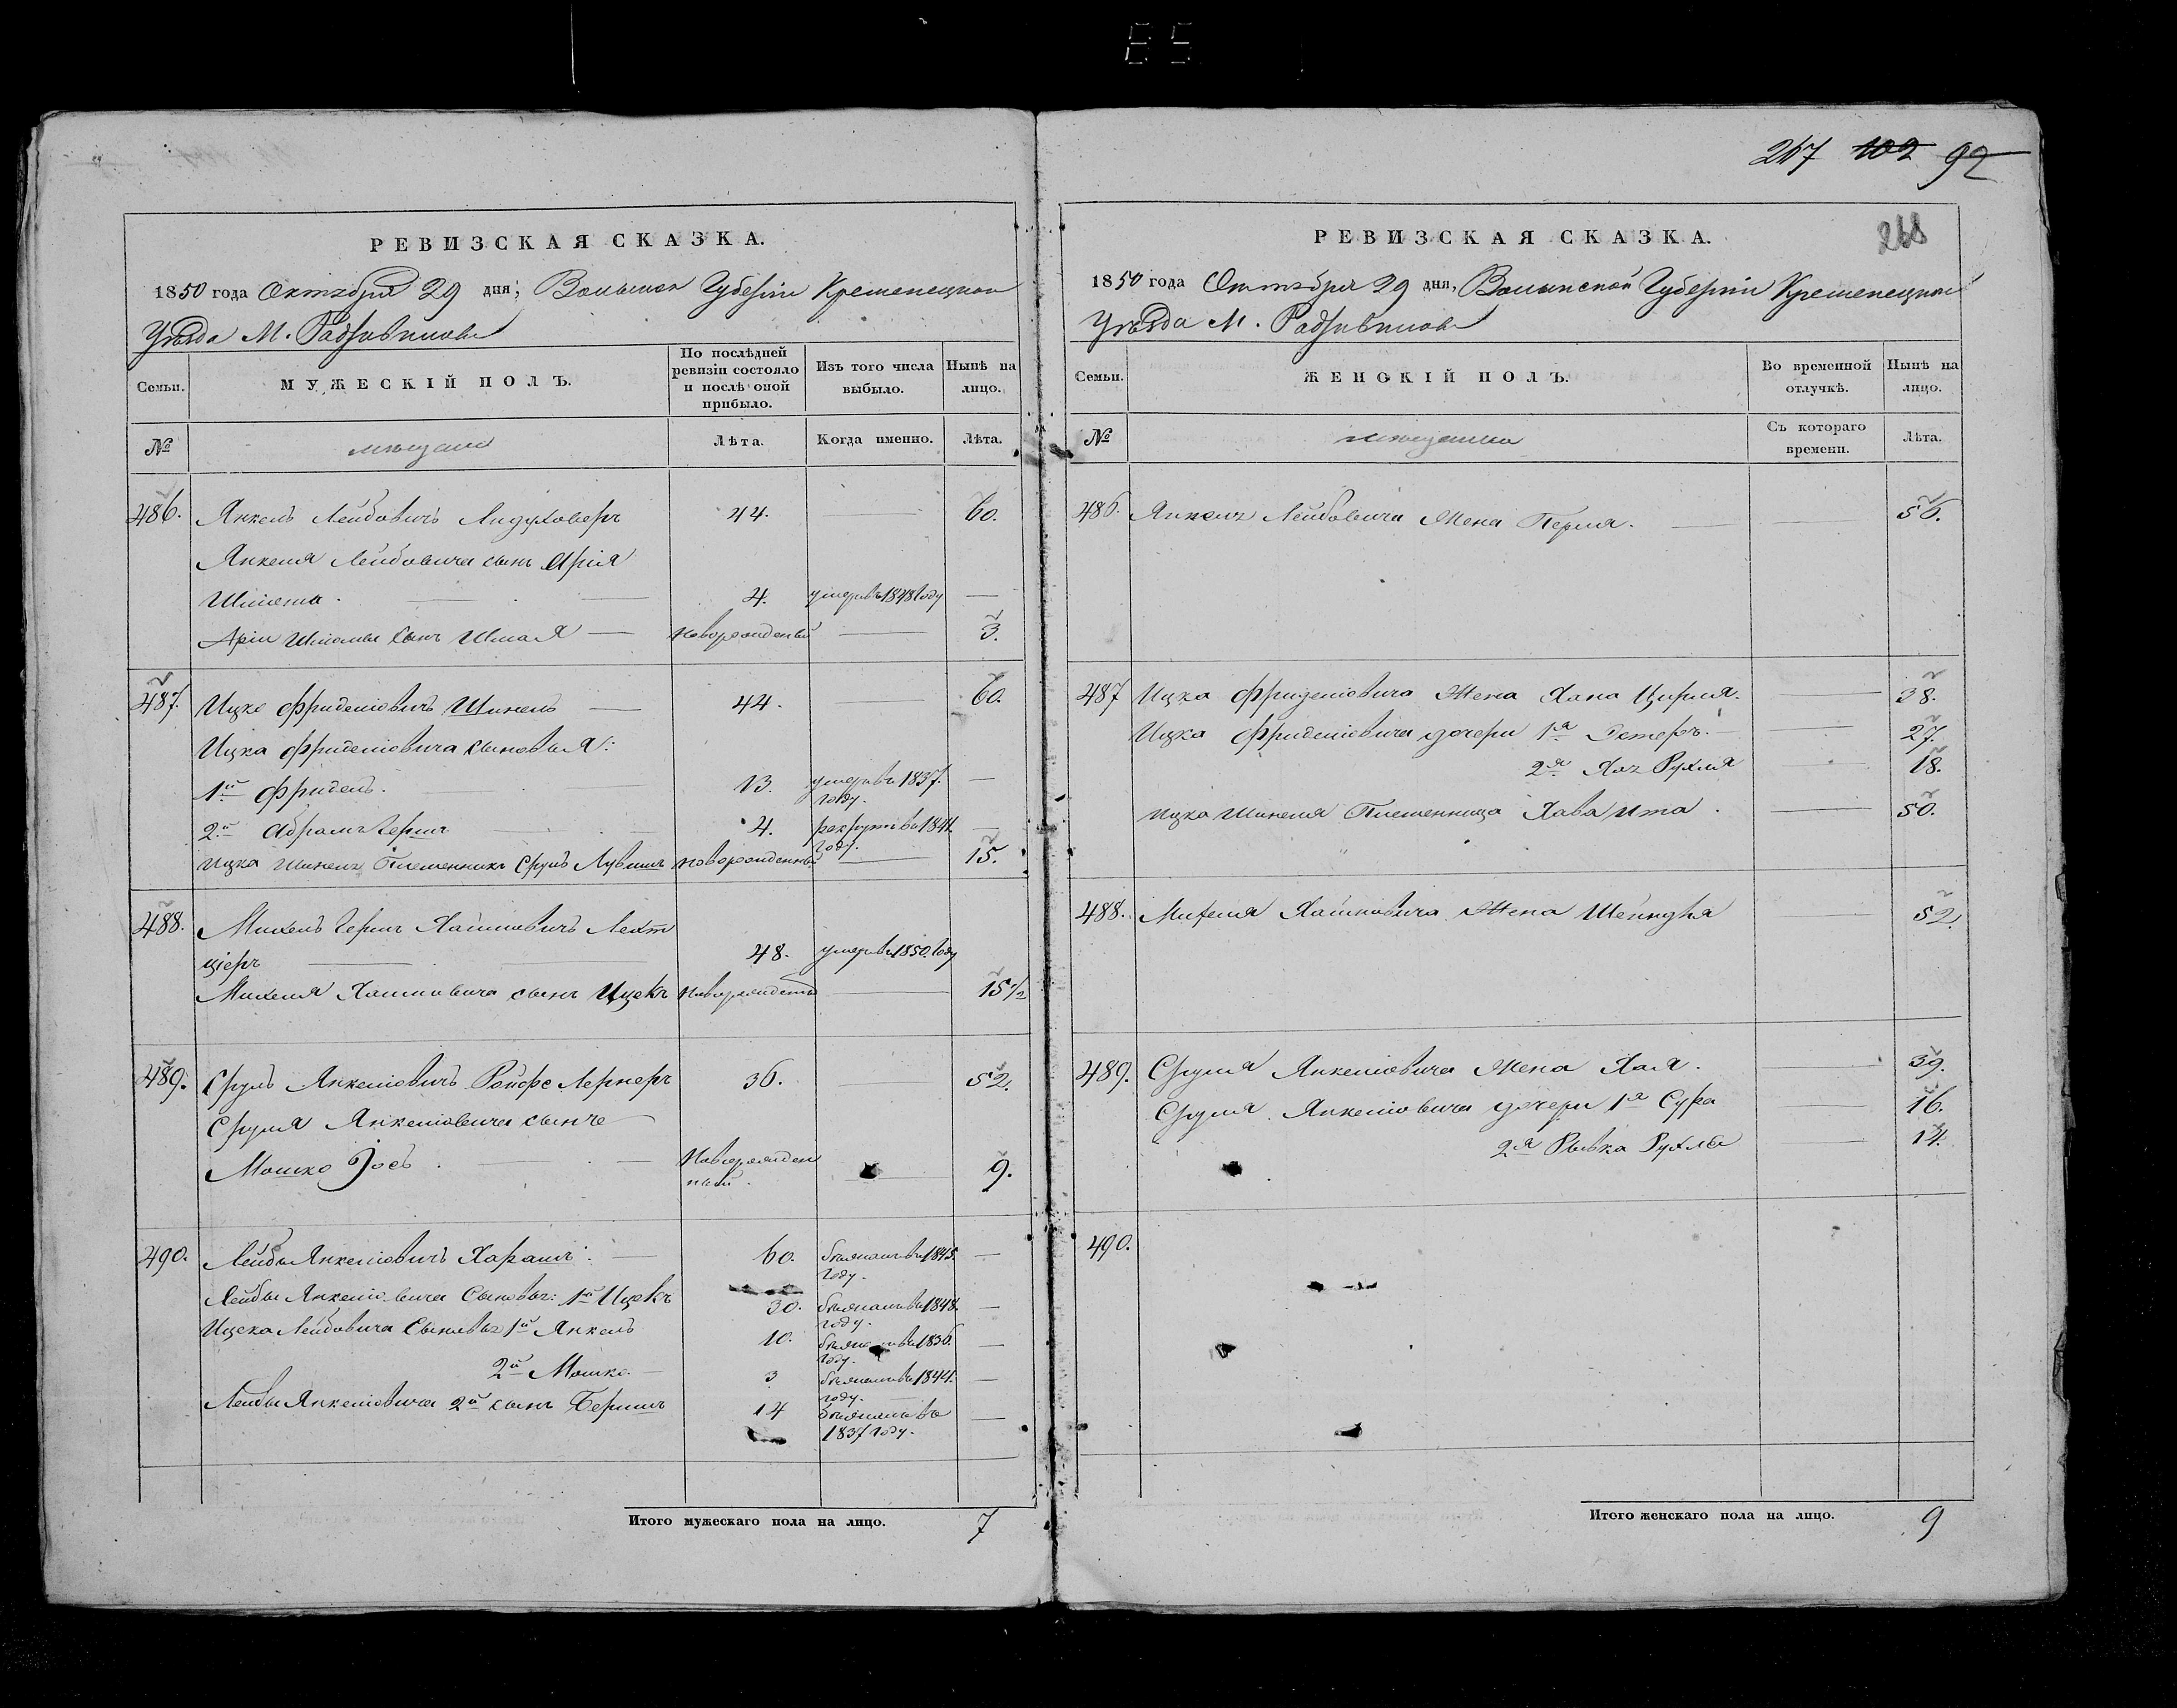 85
267 102 92
268
РЕВИЗСКАЯ СКАЗКА.
1850 года Октября 29 дня, Волынской Губерніи Кременецкого
Уѣзда М. Радзивилова
Семьи.
МУЖЕСКІЙ ПОЛЪ.
По послѣдней ревизіи состояло и послѣ оной прибыло.
Изъ того числа выбыло.
Нынѣ на лицо.
№
мѣщане
Лѣта.
Когда именно.
Лѣта.
486. Янкель Лейбовичъ Лидуховеръ 44. — 60.
Янкеля Лейбовича сынъ Арія
Шлёма. 4. умеръ въ 1848 году —
Аріи Шлёмы сынъ Шмая — новорожденный — 3.
487. Ицко Фриделіовичъ Шинель — 44. 60.
Ицка Фриделіовича сыновья:
1й Фридель. 13. умеръ въ 1837. году. —
2й Абрамъ Гершъ 4. рекрутъ въ 1841. году. —
Ицка Шинеля Племенникъ Сруль Лувишъ новорожденный — 15.
488. Михель Гершъ Хаимовичъ Лехт
ціеръ — 48. умеръ въ 1850. году
Михеля Хаимовича сынъ Ицекъ новорожденный — 15 1/2
489. Сруль Янкеліовичъ Ройфе Лернеръ 36. 52.
Сруля Янкеліовича сынъ
Мошко Іось. — Новорожденный. — 9.
490. Лейба Янкеліовичъ Харашъ. — 60. безъ вѣсти 1845. году. —
Лейбы Янкеліовича Сыновья: 1й Ицекъ 30. 1848. году. —
Ицека Лейбовича Сыновья 1й Янкель 10. 1836. году. —
2й Мошко. — 3 1844. году. —
Лейбы Янкеліовича 2й сынъ Бершъ 14 1837 году. —
Итого мужескаго пола на лицо. 7
РЕВИЗСКАЯ СКАЗКА.
1850 года Октября 29 дня, Волынской Губерніи Кременецкого
Уѣзда М. Радзивилова
Семьи.
ЖЕНСКІЙ ПОЛЪ.
Во временной отлучкѣ.
Нынѣ на лицо.
№
мѣщанки
Съ котораго времени.
Лѣта.
486. Янкеля Лейбовича Жена Перля. — 56.
487 Ицка Фриделіовича Жена Хана Цирля. — 38.
Ицка Фриделіовича дочери 1я Эстеръ. — 27.
2я Хая Рухля — 18.
Ицка Шинеля Племенница Хава Ита. — 50.
488. Михеля Хаимовича Жена Шейндля — 52.
489. Сруля Янкеліовича Жена Хая. — 39.
Сруля Янкеліовича дочери 1я Сура — 16.
2я Рывка Рухля — 14.
490.
Итого женскаго пола на лицо. 9